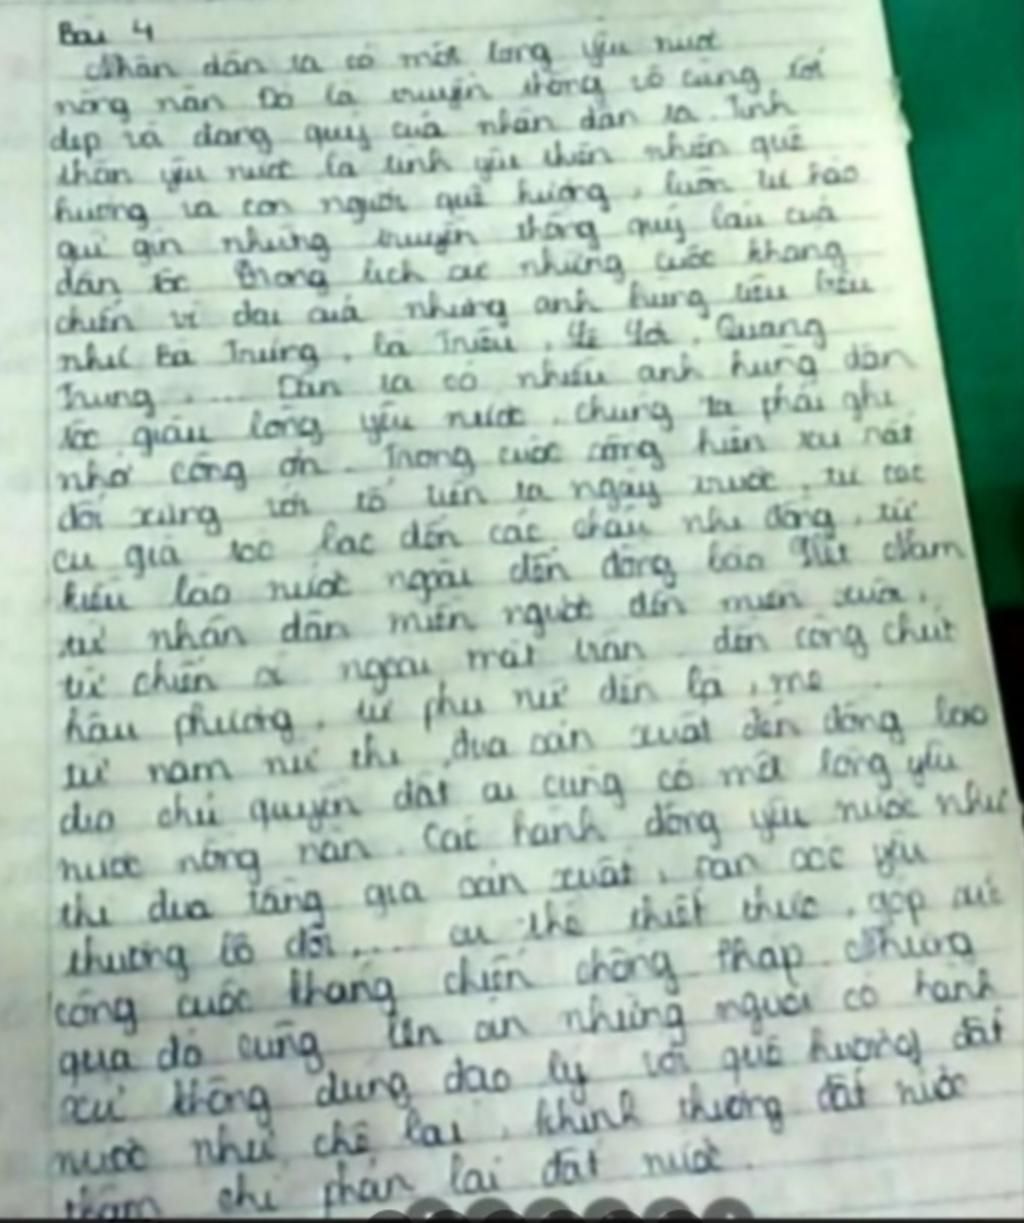 Bài 4
Nhân dân ta có một lòng yêu nước
nồng nàn Đó là truyền thống vô cùng tốt
đẹp và đáng quý của nhân dân ta. Tinh
thần yêu nước là tình yêu thiên nhiên quê
hương và con người quê hương, luôn tự hào
giữ gìn những truyền thống quý báu của
dân tộc Trong lịch sử những cuộc kháng
chiến vĩ đại của những anh hùng tiêu biểu
như Bà Trưng, Bà Triệu, Lê Lợi, Quang
Trung, .... Dân ta có nhiều anh hùng dân
tộc giàu lòng yêu nước, chúng ta phải ghi
nhớ công ơn. Trong cuộc cống hiến xứ
đối xứng với tổ tiên ta ngày trước, từ các
cụ già tóc bạc đến các cháu nhi đồng, từ
kiều bào nước ngoài đến đồng bào Việt Nam
từ nhân dân miền ngược đến miền xuôi,
từ chiến sĩ ngoài mặt trận đến công chức
hậu phương, từ phụ nữ đến bà, mẹ
từ nam nữ thi đua sản xuất đến đồng bào
điền chủ quyên đất ai cũng có một lòng yêu
nước nồng nàn. Các hành động yêu nước như
thi đua tăng gia sản xuất, săn sóc yêu
thương bộ đội.... cụ thể thiết thực, góp sức
công cuộc kháng chiến chống Pháp Nhưng
qua đó cũng lên án những người có hành
xử không đúng đạo lý với quê hương đất
nước như chê bai, khinh thường đất nước
thậm chí phản lại đất nước.